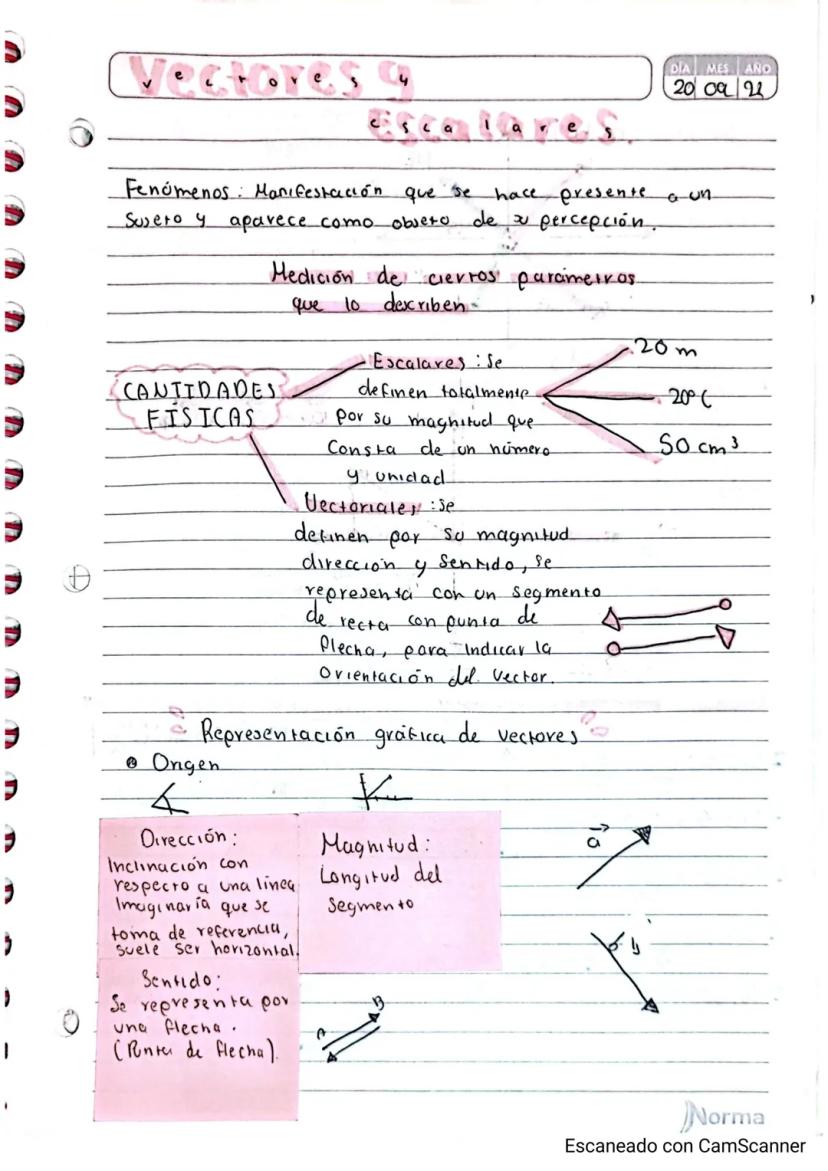 Vectores y
DÍA MES AÑO
20 09 21
Escalares.
Fenómenos: Manifestación que se hace presente a un
sujeto y aparece como objeto de su percepción.
Medición de ciertos parámetros
que lo describen
CANTIDADES
FÍSICAS
Escalares: Se
definen totalmente
por su magnitud que
Consta de un número
y unidad
20 m
20°C
50 cm³
Vectoriales: Se
definen por su magnitud
dirección y sentido, se
representa con un segmento
de recta con punta de
flecha, para indicar la
Orientación del vector.
Representación gráfica de vectores
Origen
Dirección:
Inclinación con
respecto a una línea
Imaginaria que se
toma de referencia,
suele ser horizontal.
Magnitud:
Longitud del
segmento
a
Sentido:
Se representa por
una flecha.
(Punta de flecha).
A
B
Norma
Escaneado con CamScanner